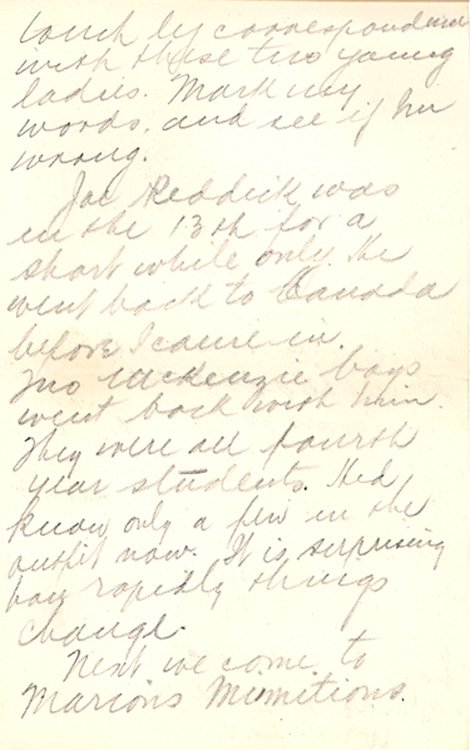 touch by correspondence
with these two young
ladies. Mark my
words, and see if I'm
wrong.
Joe Reddick was
in the 13th for a
short while only. He
went back to Canada
before I came in.
Two McKenzie boys
went back with him.
They were all fourth
year students. He'd
know only a few in the
outfit now. It is surprising
how rapidly things
change.
Next we come to
Marion's Munitions.